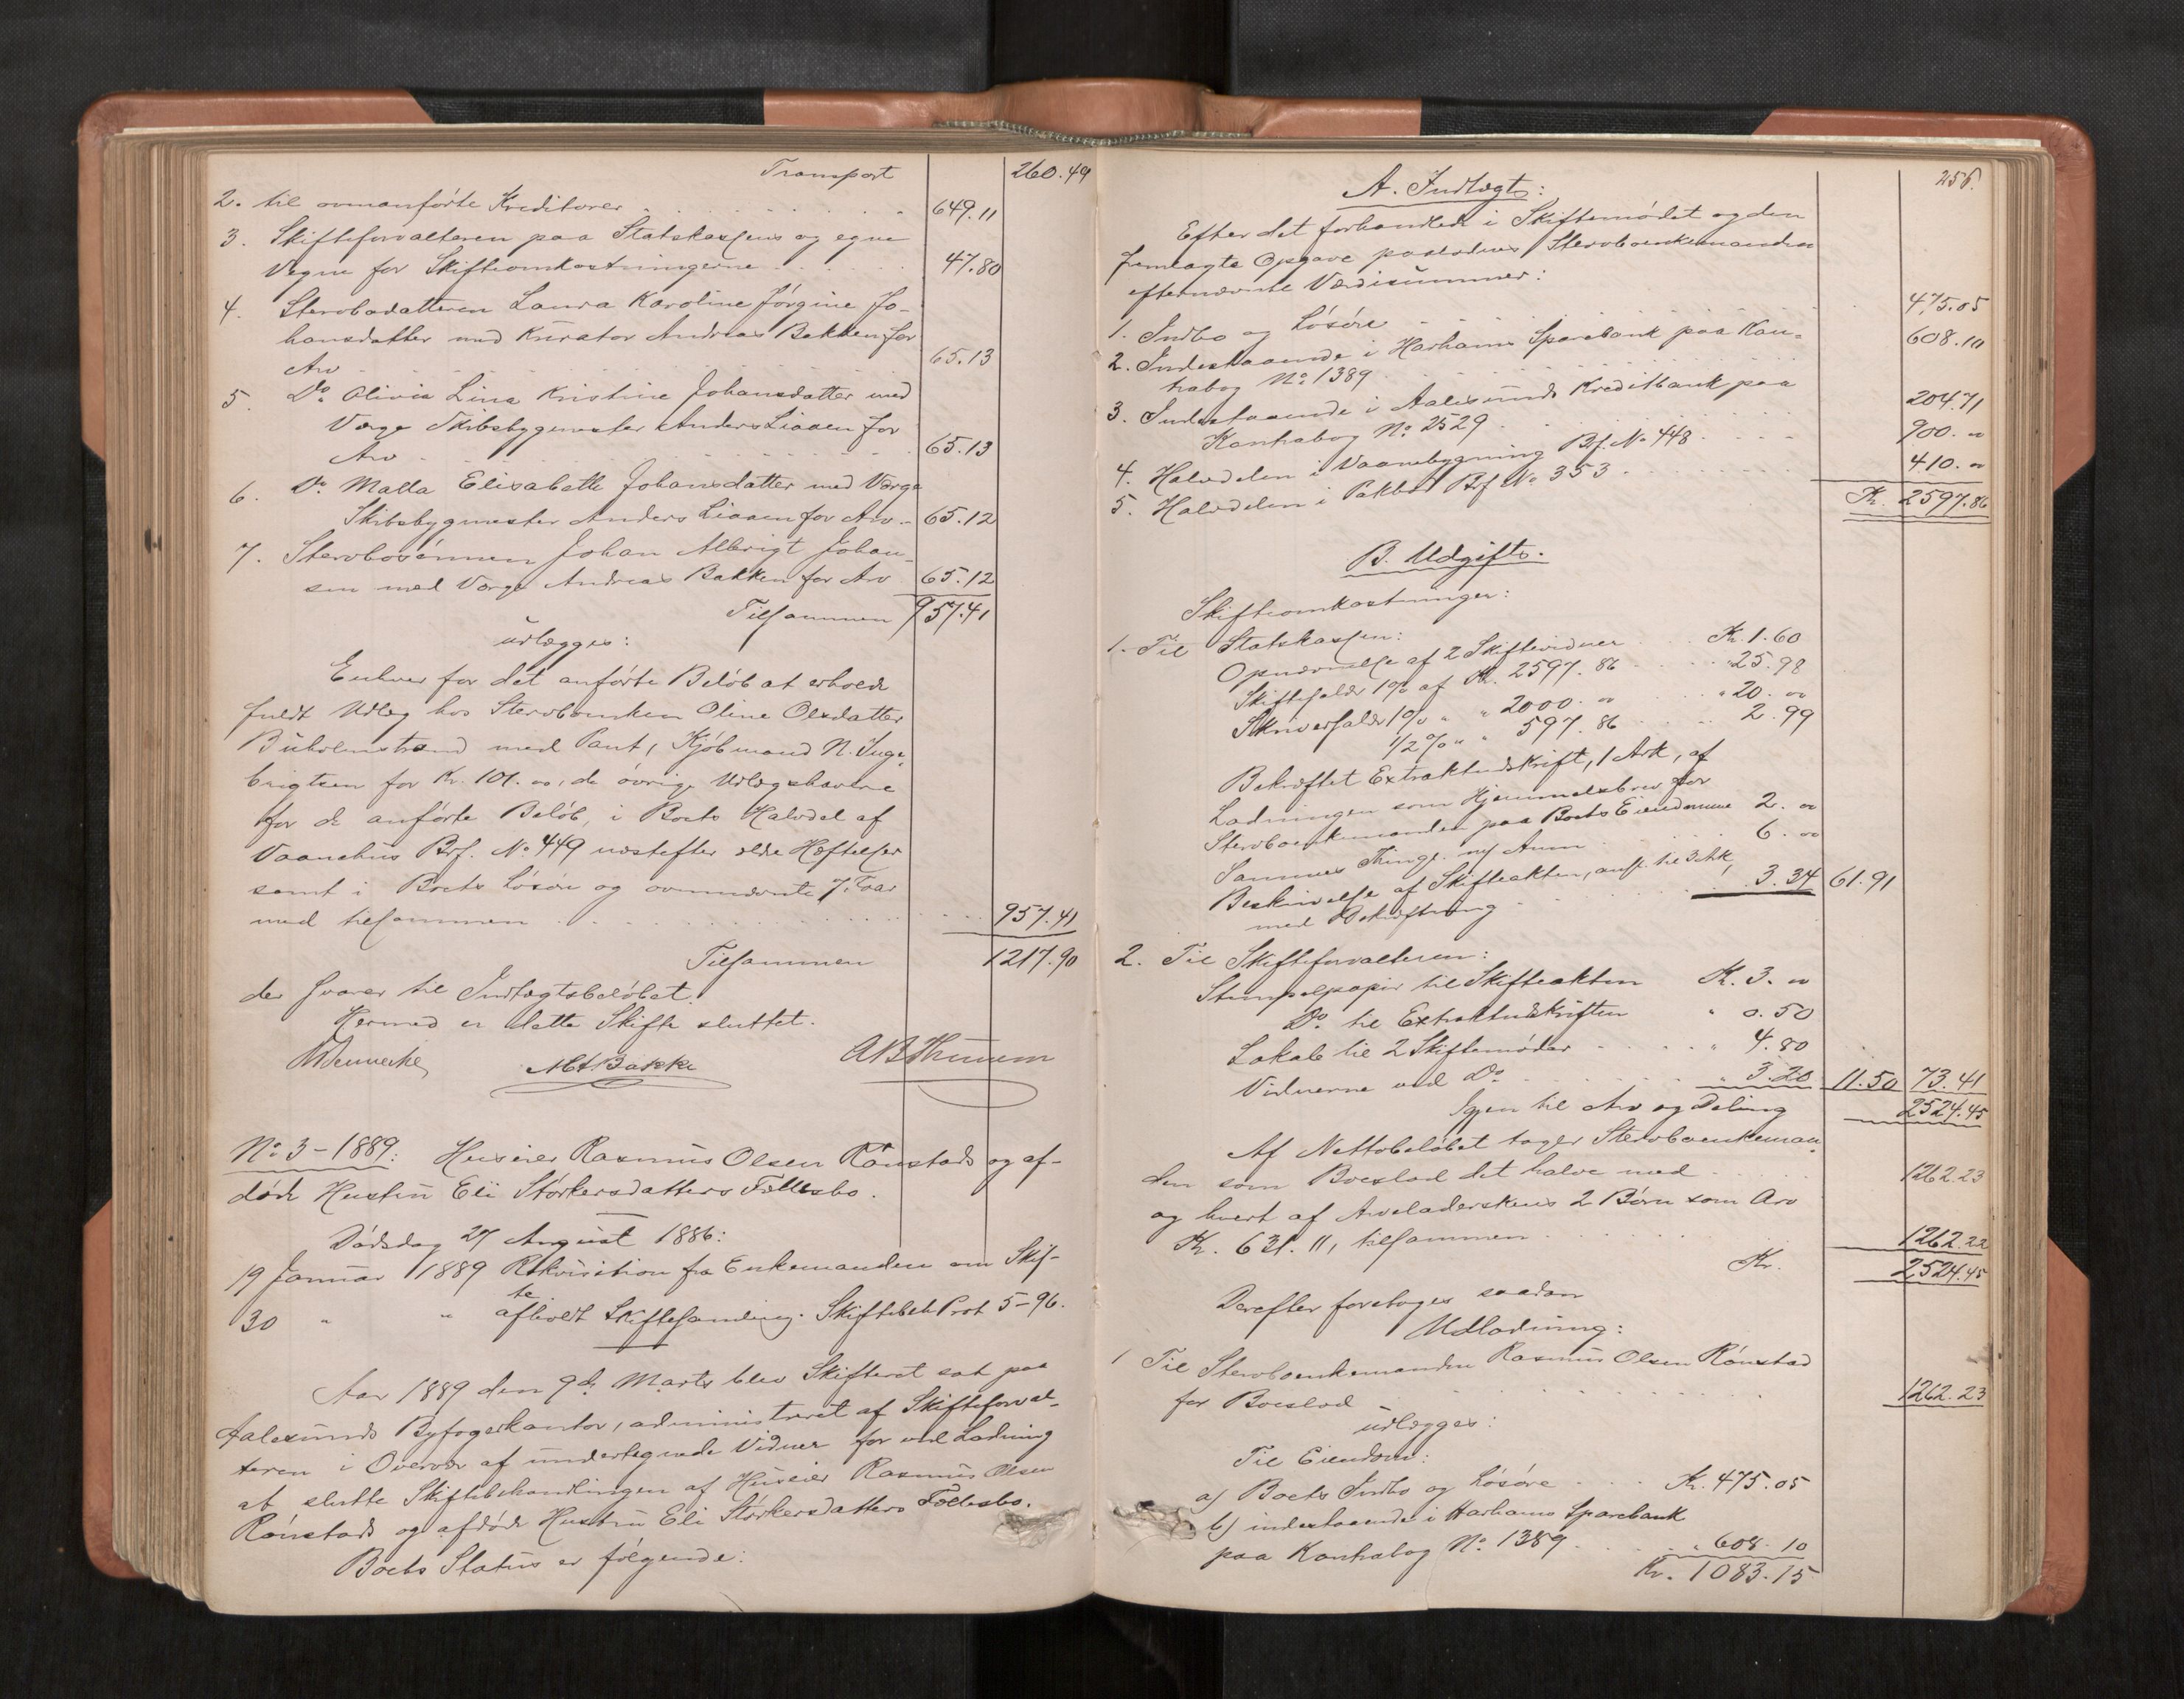 Transport 260.49
2. til ovenanførte Kreditorer 649.11
3. Skifteforvalteren paa Statskassens og egne
Vegne for Skifteomkostningerne 47.80
4. Stervbodatteren Laura Karoline Jørgine Jo-
hansdatter med Kurator Andreas Bakken for
Arv 65.13
5. Do Olivia Lina Kristine Johansdatter med
Værge Skibsbygmester Anders Liaaen for
Arv 65.13
6. Do Malla Elisabeth Johansdatter med Værge
Skibsbygmester Anders Liaaen for Arv 65.12
7. Stervbosønnen Johan Albrigt Johan-
sen med Værge Andreas Bakken for Arv 65.12
Tilsammen 957.41
udlægges:
Enhver for det anførte Beløb at erholde
fuldt Udlæg hos Stervboenken Oline Olsdatter
Buholmstrand med Pant, Kjøbmand N. Inge-
brigtsen for Kr. 101.00, de øvrige Udlægshavere
for de anførte Beløb, i Boets Halvdel af
Vaanehus Brf. No 449 næstefter ældre Hæftelser
samt i Boets Løsøre og ovennævnte 7. Faar
med tilsammen 957.41
Tilsammen 1217.90
der svarer til Indtægtsbeløbet.
Hermed er dette Skifte sluttet.
No 3 – 1889: Huseier Rasmus Olsen Rønstads og af-
døde Hustru Eli Størkersdatters Fællesbo.
Dødsdag 27 August 1886:
19 Januar 1889 Rekvisition fra Enkemanden om Skif-
te
30 " " afholdt Skiftesamling. Skiftebeh. Prot 5–96.
Aar 1889 den 9de Marts blev Skifteret sat paa
Aalesunds Byfogedkontor, administreret af Skifteforval-
teren i Overvær af undertegnede Vidner for ved Lodning
at slutte Skiftebehandlingen af Huseier Rasmus Olsen
Rønstads og afdøde Hustru Eli Størkersdatters Fællesbo.
Boets Status er følgende:
256.
A. Indtægt:
Efter det forhandlede i Skiftemødet og den
fremlagte Opgave paalodnes Stervboenkemanden
efternævnte Værdisummer:
1. Indbo og Løsøre 475.05
2. Indestaaende i Harhams Sparebank paa Kon-
trabog No 1389 608.10
3. Indestaaende i Aalesunds Kreditbank paa
Kontrabog No 2529 204.71
4. Halvdelen i Vaanebygning Brf. No 448 900.00
5. Halvdelen i Pakbod Brf No 353 410.00
Kr. 2597.86
B. Udgift.
Skifteomkostninger:
1. Til Statskassen:
Opnævnelse af 2 Skiftevidner Kr. 1.60
Skiftesalær 1% af Kr. 2597.86 " 25.98
Skriversalær 1% " " 2000.00 " 20.00
1/2% " " 597.86 " 2.99
Bekræftet Extraktudskrift, 1 Ark, af
Lodningen som Hjemmelsbrev for
Stervboenkemanden paa Boets Eiendomme 2.00
Sammes Thingl. m/ Anm. 6.00
Beskrivelse af Skifteakten, ansl. til 3 Ark,
med Bekræftning 3.34 61.91
2. Til Skifteforvalteren:
Stempelpapir til Skifteakten Kr. 3.00
Do til Extraktudskriften " 0.50
Lokale til 2 Skiftemøder " 4.80
Vidnerne ved Do " 3.20 11.50 73.41
Igjen til Arv og Deling 2524.45
Af Nettobeløbet tager Stervboenkeman-
den som Boeslod det halve med 1262.23
og hvert af Arveladerskens 2 Børn som Arv
Kr. 631.11, tilsammen 1262.22
Kr. 2524.45
Derefter foretoges saadan
Udlodning:
1 Til Stervboenkemanden Rasmus Olsen Rønstad
for Boeslod 1262.23
udlægges:
Til Eiendom:
a) Boets Indbo og Løsøre Kr. 475.05
b) indestaaende i Harhams Sparebank
paa Kontrabog No 1389 " 608.10
Kr. 1083.15